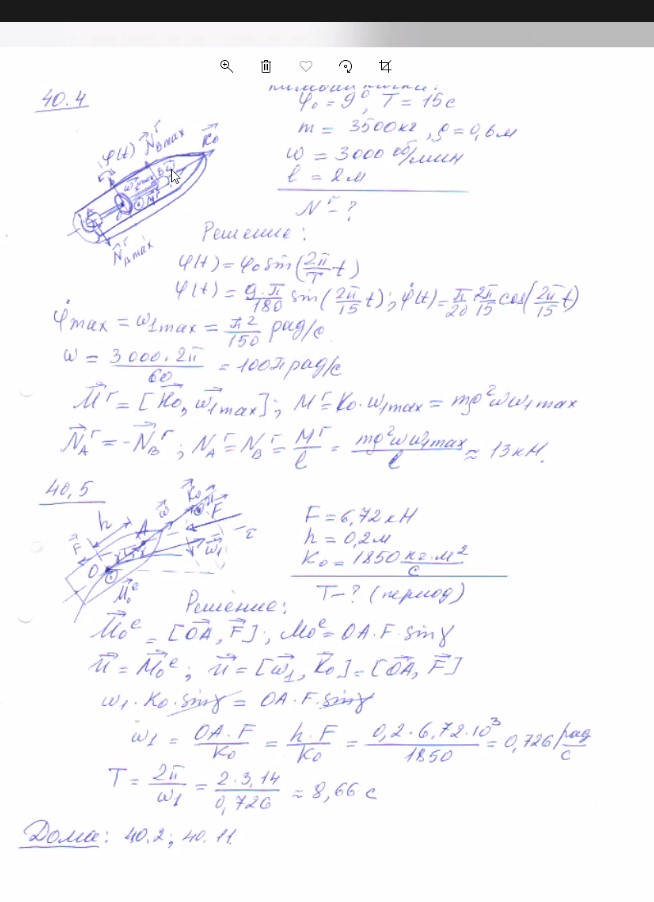 40.4
φ₀ = 9°, T = 15 с
m = 3500 кг, ρ = 0,6 м
ω = 3000 об/мин
l = 2 м
N^г - ?
φ(t) N_B^г max K₀
N_A^г max
Решение:
φ(t) = φ₀ sin(2π/T t)
φ(t) = 9·π/180 sin(2π/15 t); φ̇(t) = π/20 2π/15 cos(2π/15 t)
φ̇max = ω₁max = π²/150 рад/с
ω = 3000·2π/60 = 100π рад/с
M^г = [K₀, ω₁max]; M^г = K₀·ω₁max = mρ²ωω₁max
N_A^г = -N_B^г; N_A^г = N_B^г = M^г/l = mρ²ωω₁max/l ≈ 13 кН.
40,5
F = 6,72 кН
h = 0,2 м
K₀ = 1850 кг·м²/с
T - ? (период)
h A ω K₀ F τ
F O ω₁
M₀^e
Решение:
M₀^e = [OA, F]; M₀^e = OA·F·sinγ
u = M₀^e; u = [ω₁, K₀] = [OA, F]
ω₁·K₀·sinγ = OA·F·sinγ
ω₁ = OA·F/K₀ = h·F/K₀ = 0,2·6,72·10³/1850 = 0,726 рад/с
T = 2π/ω₁ = 2·3,14/0,726 ≈ 8,66 с
Дома: 40.2; 40.11.